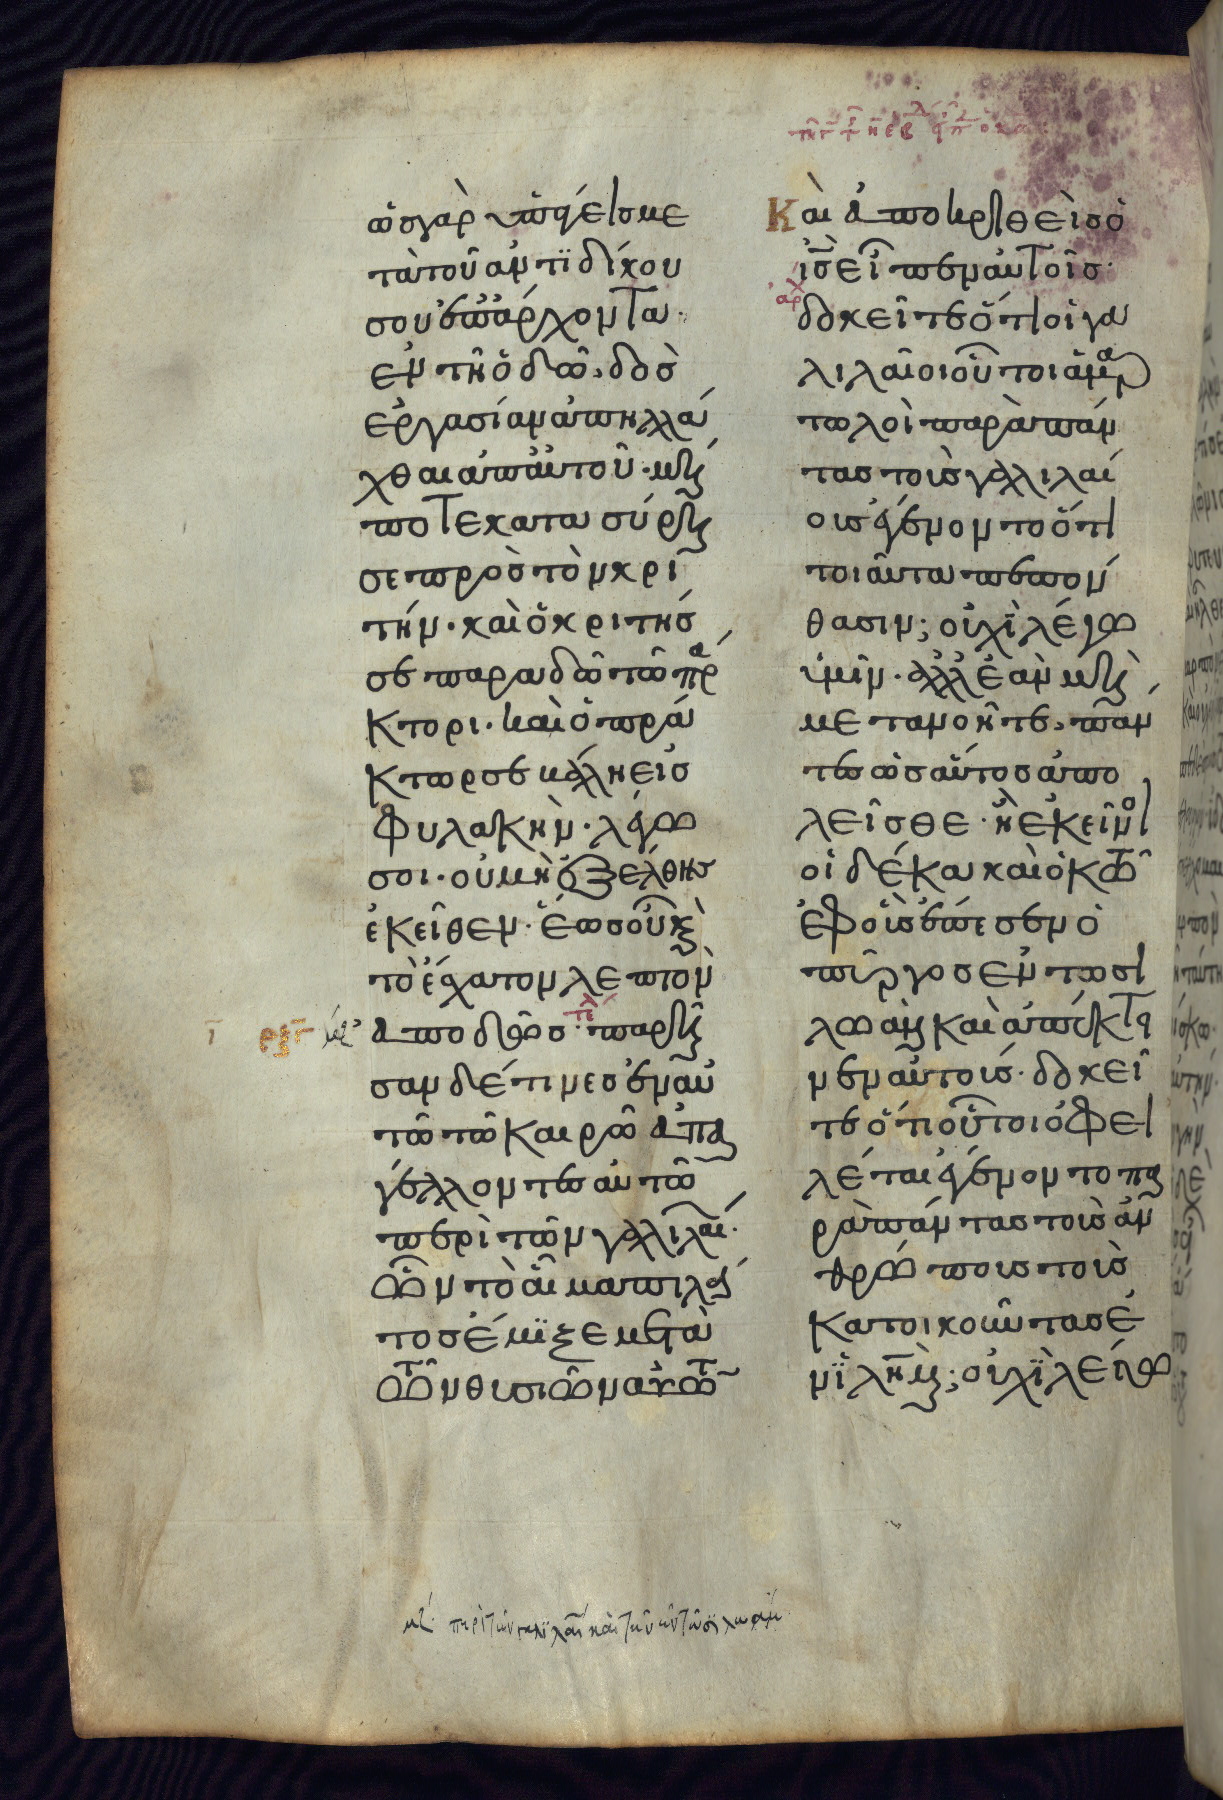 ὡς γὰρ ὑπάγεις με
τὰ τοῦ ἀντϊδίκου
σου ἐπ' ἄρχοντα·
ἐν τῆ ὁδῶ, δὸς
ἐργασίαν ἀπηλλά
χθαι ἀπ' αὐτοῦ· μή
ποτε κατασύρη
σε πρὸς τὸν κρι
τήν· καὶ ὁ κριτής
σε παραδῶ τῶ πρά
κτορι· καὶ ὁ πρά
κτωρ σε βάλη εἰς
φυλακὴν· λέγω
σοι· οὐ μὴ ἐξέλθης
ἐκεῖθεν· ἕως οὗ κὲ
τὸ ἔσχατον λεπτὸν
ἀποδῶς· παρῆ
σαν δέ τινες ἐν αὐ
τῶ τῶ καιρῶ ἀπα
γέλλοντες αὐτῶ
περὶ τῶν γαλιλαί
ων ὧν τὸ αἷμα πιλά
τος ἔμϊξε μετὰ
τῶν θυσιῶν αὐτῶν
Καὶ ἀποκριθεὶς ὁ
ι̅ς̅ εἶπεν αὐτοῖς·
δοκεῖτε ὅτι οἱ γα
λιλαῖοι οὗτοι ἁμαρ
τωλοὶ παρὰ πάν
τας τοὺς γαλιλαί
ους ἐγένοντο ὅτι
τοιαῦτα πεπόν
θασιν; οὐχὶ λέγω
ὑμῖν· ἀλλ' ἐὰν μὴ
μετανοῆτε, πάν
τες ὡσαύτος ἀπο
λεῖσθε· ἢ ἐκεῖνοι
οἱ δέκα καὶ ὀκτὼ
ἐφ' οὓς ἔπεσεν ὁ
πύργος ἐν τῶ σι
λωὰμ καὶ ἀπέκτει
νεν αὐτούς· δοκεῖ
τε ὅτι οὗτοι ὀφει
λέται ἐγένοντο πα
ρὰ πάντας τοὺς ἀν
θρώπους τοὺς
κατοικοῦντας ἐ
νϊ λη̅μ; οὐχὶ λέγω
περὶ τῶν γαλιλαί καὶ τῶν ἐν τῶ σϊλωάμ